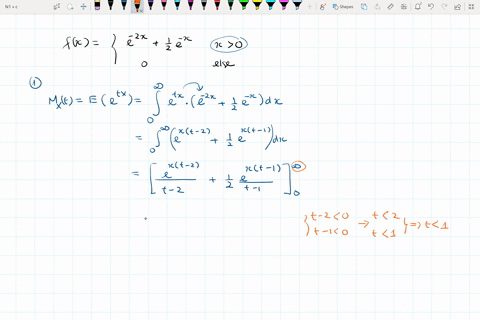 f(x) = { e^{-2x} + 1/2 e^{-x} x > 0
0 else
①
M_x(t) = E(e^{tx}) = ∫_0^∞ e^{tx} · (e^{-2x} + 1/2 e^{-x}) dx
= ∫_0^∞ (e^{x(t-2)} + 1/2 e^{x(t-1)}) dx
= [ e^{x(t-2)} / t-2 + 1/2 e^{x(t-1)} / t-1 ]_0^∞
{ t-2<0 → t<2 } => t<1
t-1<0 t<1